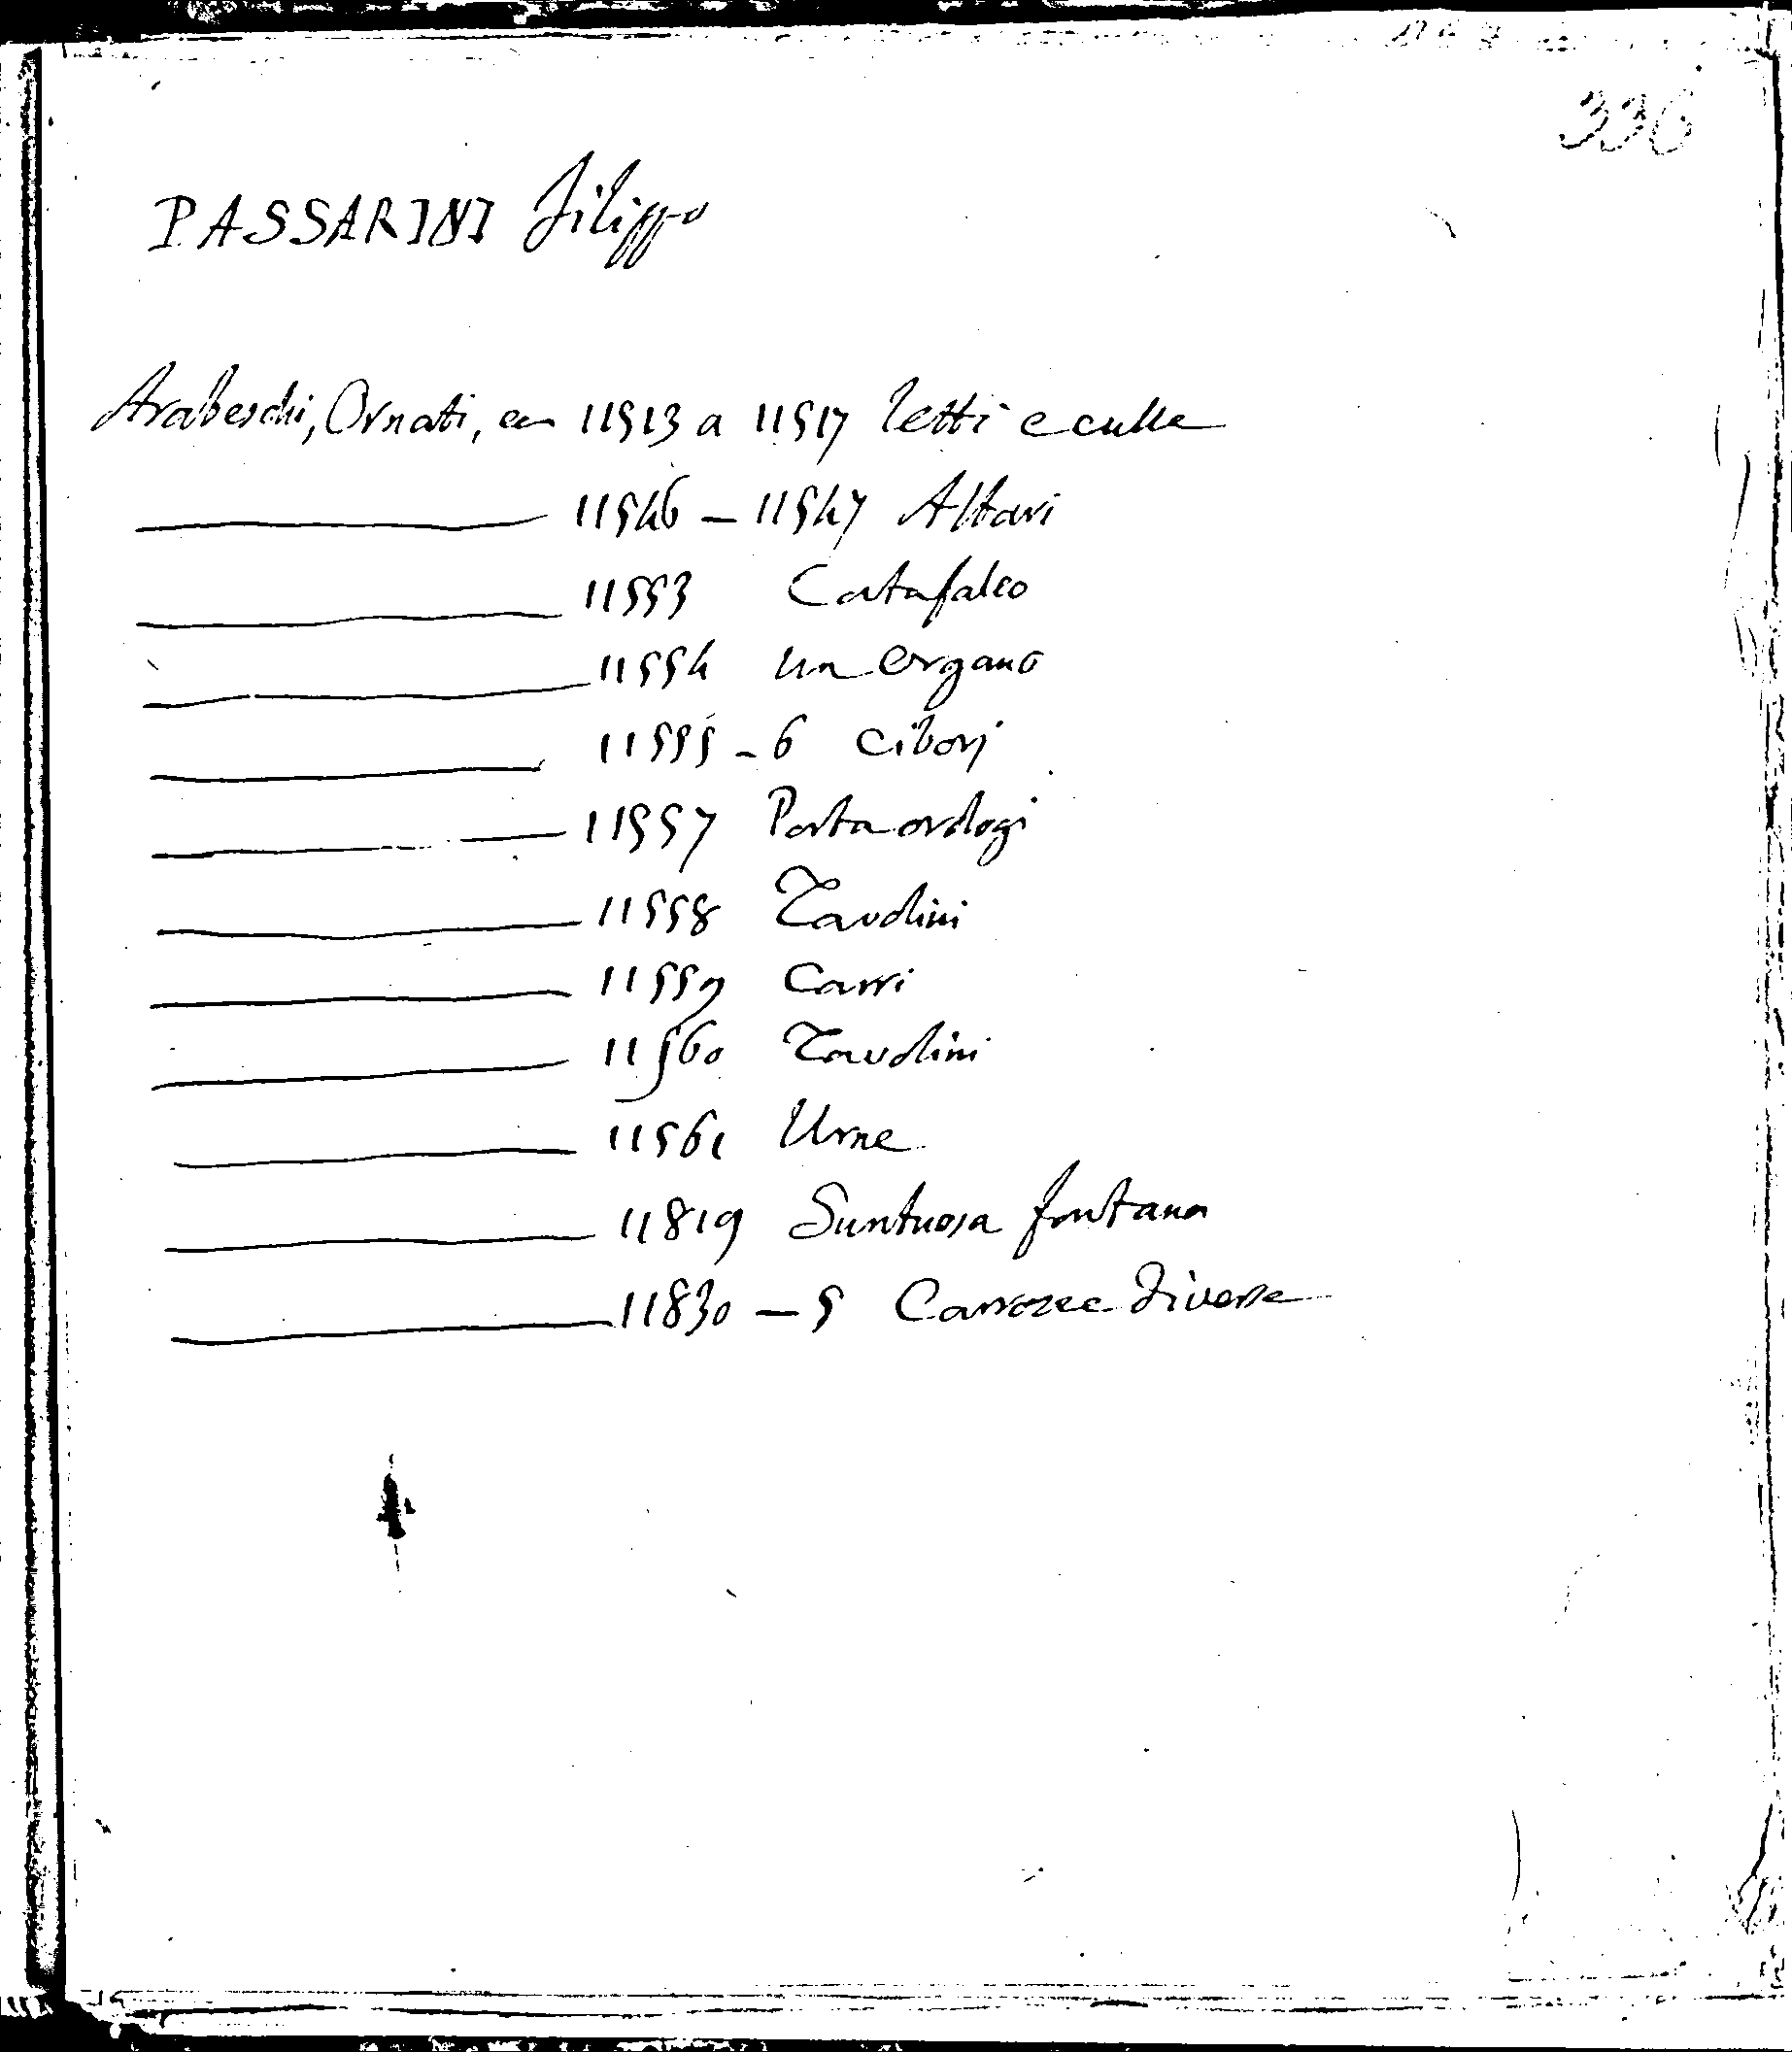 336
PASSARINI Filippo
Arabeschi, Ornati, ec 11513 a 11517 letti e culle
11546 - 11547 Altari
11553 Catafalco
11554 un Organo
11555 - 6 Ciborj
11557 Porta orologi
11558 Tavolini
11559 Carri
11560 Tavolini
11561 Urne
11819 Suntuosa fontana
11830 - 5 Carrozze diverse